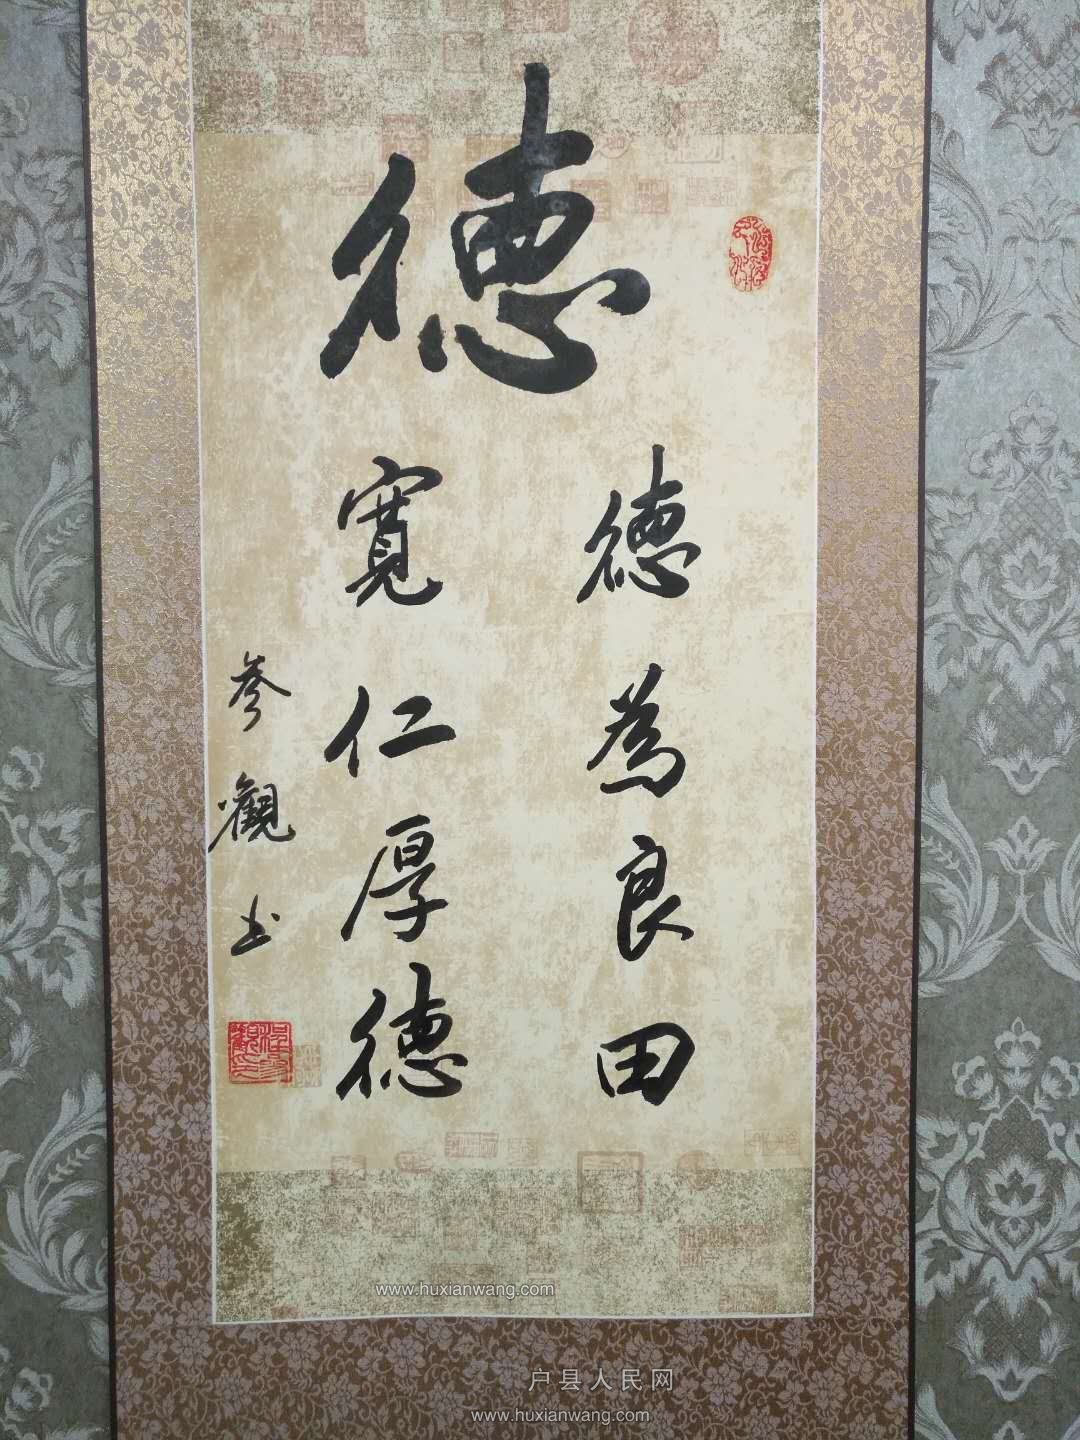 德
德為良田
寬仁厚德
參觀书
www.huxianwang.com
户县人民网
www.huxianwang.com